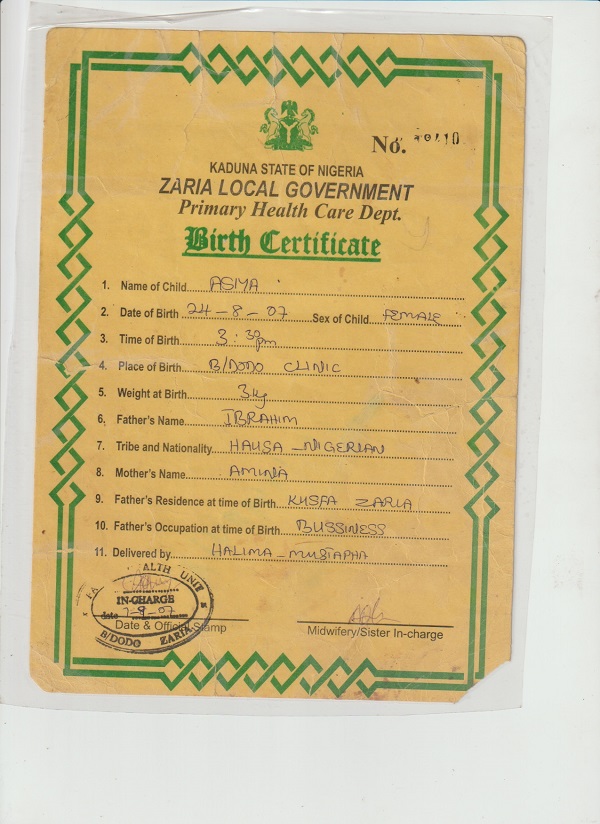 No.
KADUNA STATE OF NIGERIA
ZARIA LOCAL GOVERNMENT
Primary Health Care Dept.
Birth Certificate
1. Name of Child ASIYA
2. Date of Birth 24-8-07 Sex of Child FEMALE
3. Time of Birth 3:30pm
4. Place of Birth B/DODO CLINIC
5. Weight at Birth 3kg
6. Father's Name IBRAHIM
7. Tribe and Nationality HAUSA-NIGERIAN
8. Mother's Name AMINA
9. Father's Residence at time of Birth KUSFA ZARIA
10. Father's Occupation at time of Birth BUSSINESS
11. Delivered by HALIMA-MUSTAPHA
HEALTH UNIT
IN-CHARGE
date 7-9-07
B/DODO ZARIA
Date & Official Stamp
Midwifery/Sister In-charge